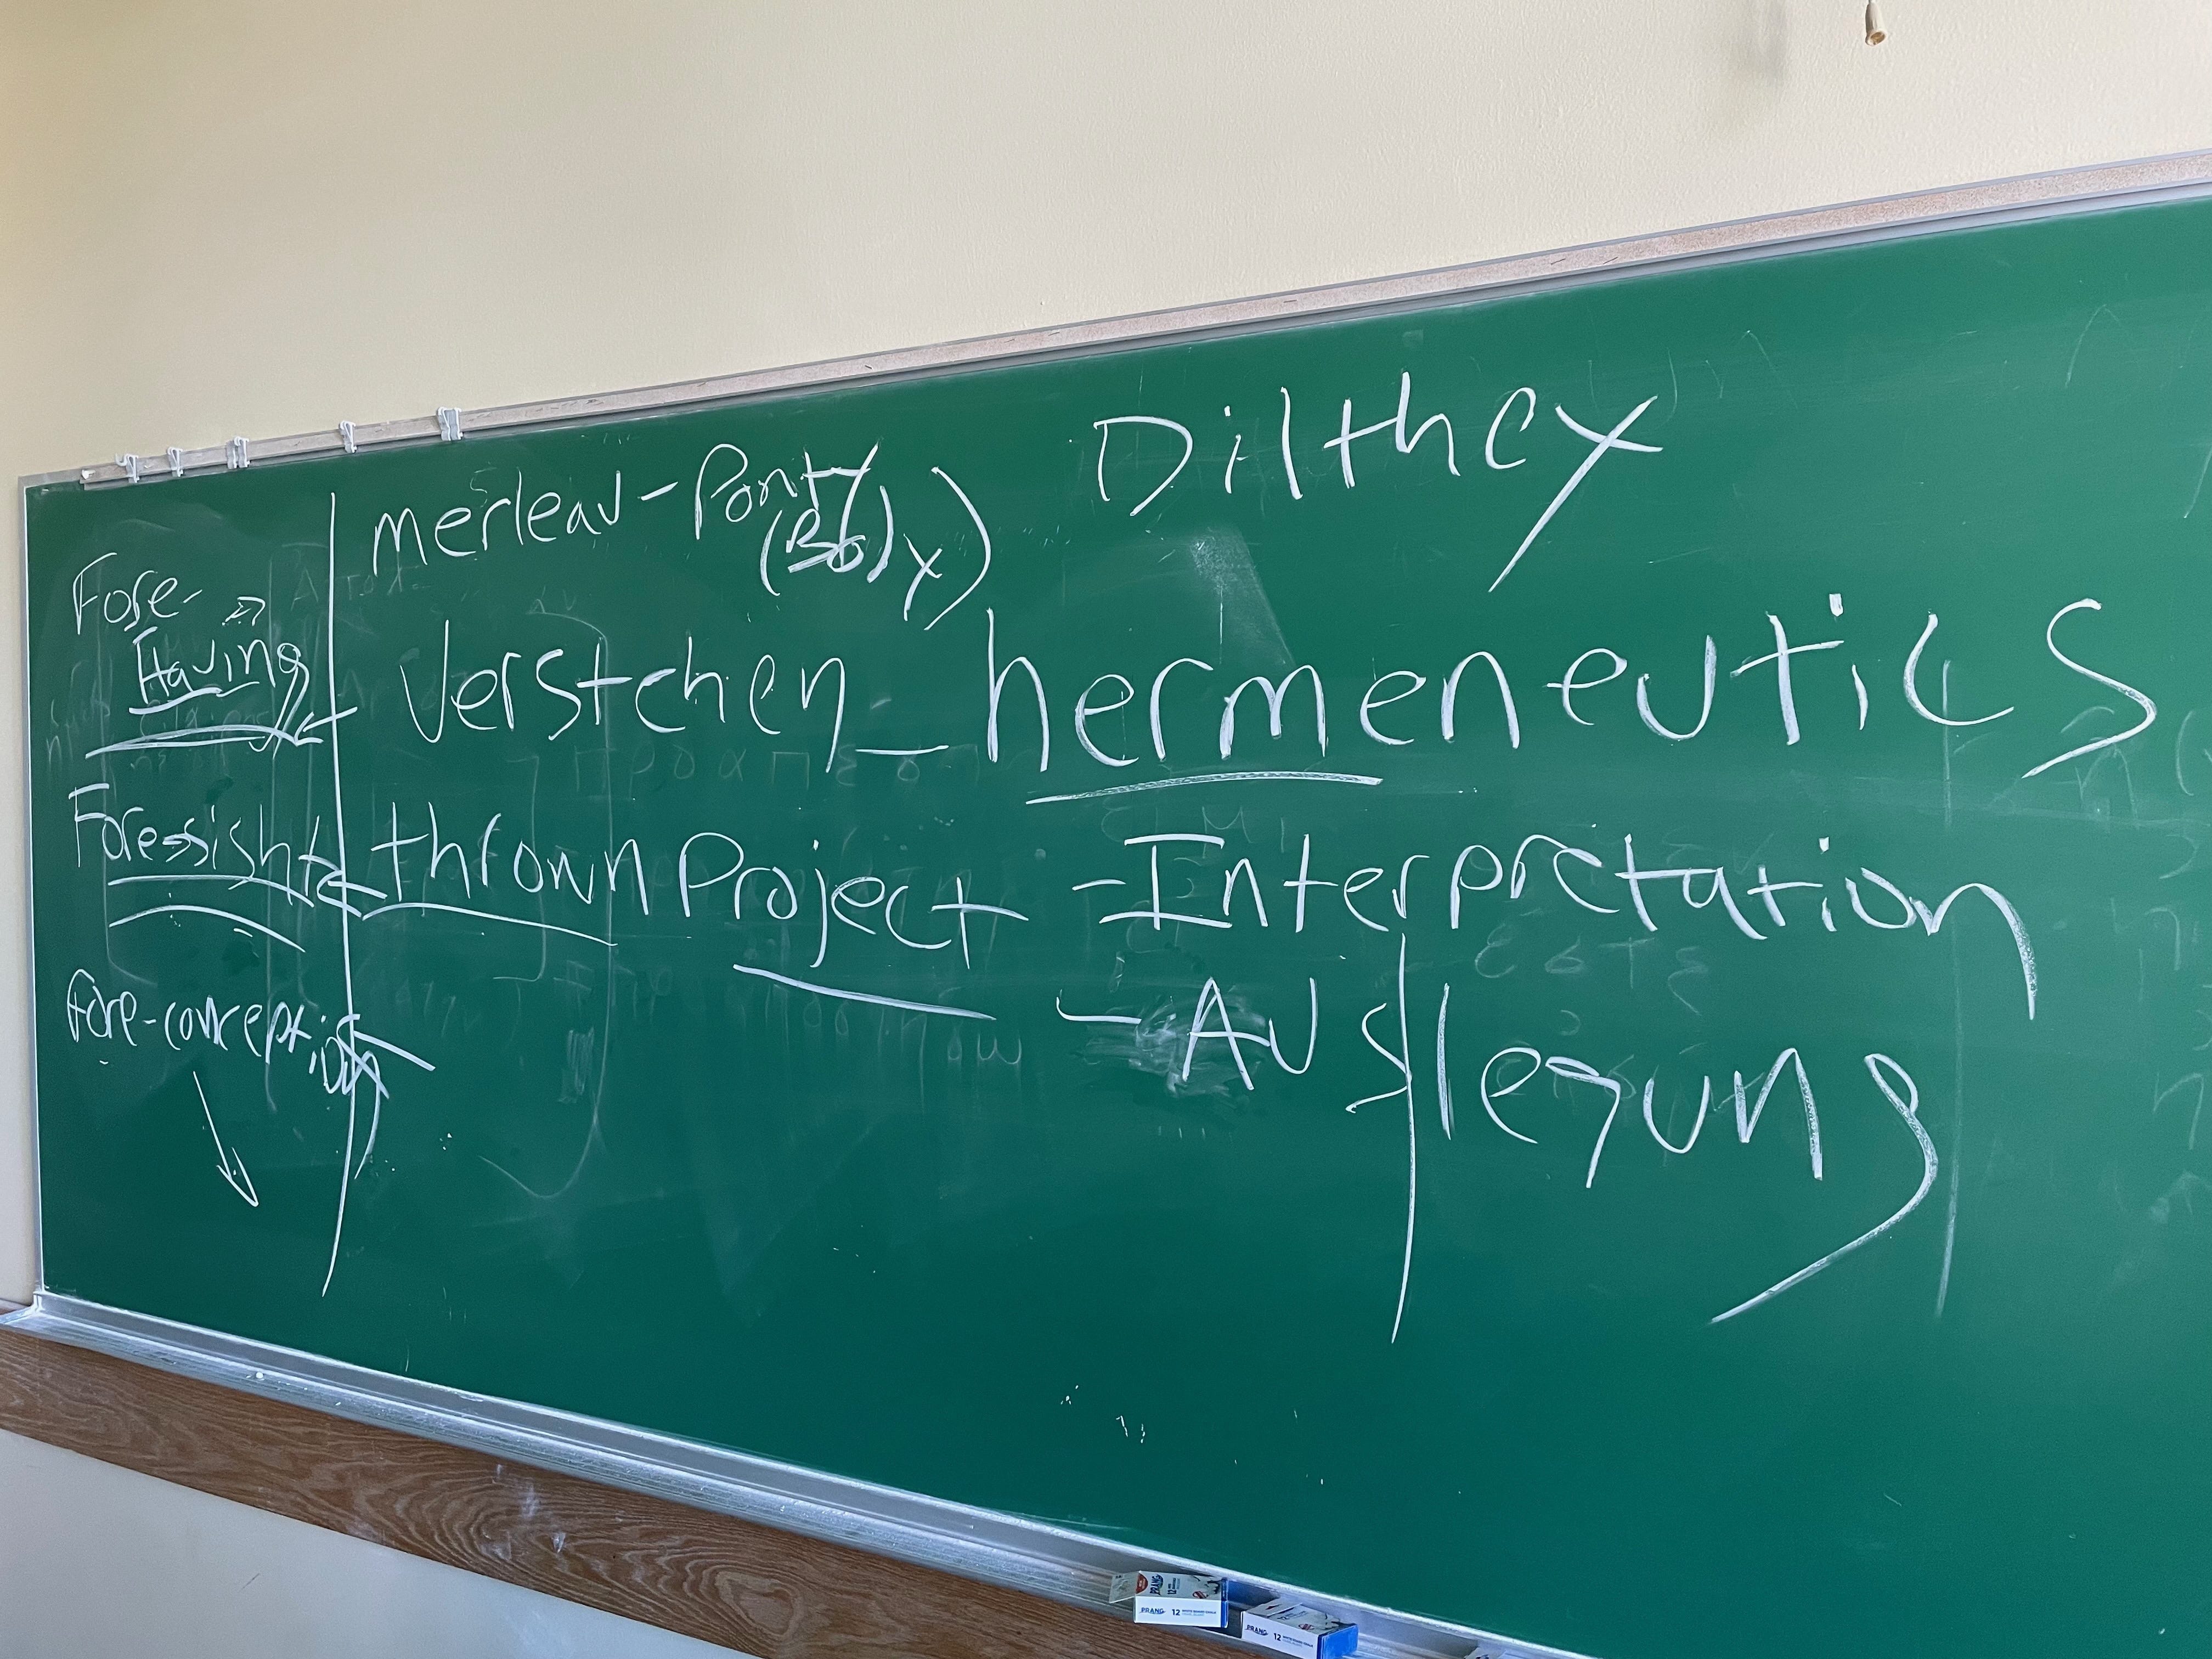 Dilthey
Merleau-Ponty
Fore-
Having
Verstehen - hermeneutics
Fore-sight
thrown Project - Interpretation
- Aus|legung
Fore-conception
PRANG 12
PRANG 12